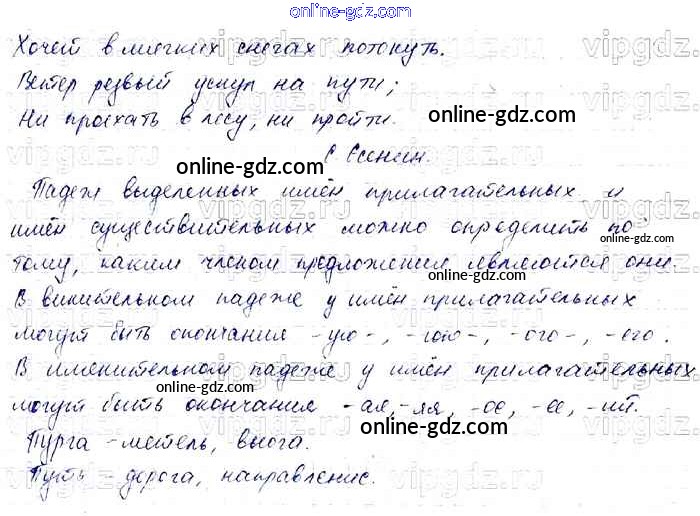 Хочей в мягких снегах потонуть.
Ветер резвый уснул на пути;
Ни проехать в лесу, ни пройти.
С. Есенин.
Падеж выделенных имён прилагательных и
имён существительных можно определить по
тому, каким членом предложения являются они
В винительном падеже у имён прилагательных
могут быть окончания -ую-, -юю-, -ого-, -его.
В именительном падеже у имён прилагательных
могут быть окончания -ая, -яя, -ое, -ее, -ий.
Пурга - метель, вьюга.
Путь - дорога, направление.
online-gdz.com
online-gdz.com
online-gdz.com
online-gdz.com
online-gdz.com
online-gdz.com
online-gdz.com
online-gdz.com
vipgdz.ru